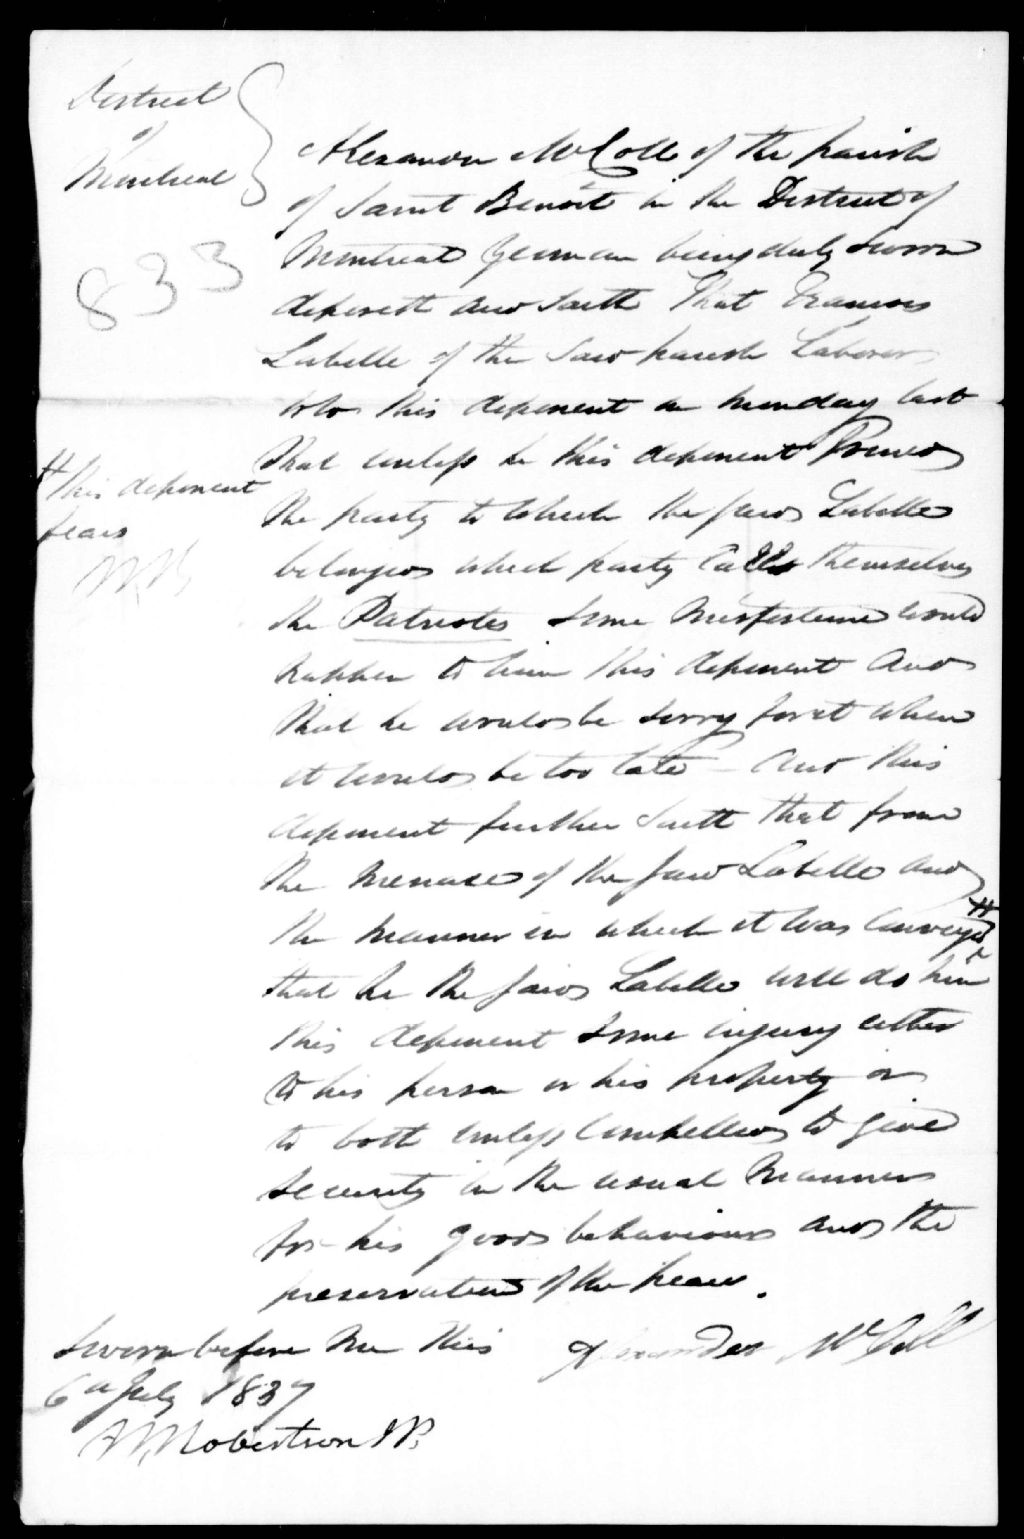 District
of
Montreal
833
Alexander McColl of the parish
of Saint Benoit in the District of
Montreal Yeoman being duly sworn
deposeth and saith That Francois
Labelle of the said parish Laborer
told this deponent on Monday last
that unless he this deponent joined
the party to which the said Labelle
belonged which party calls themselves
the Patriotes some misfortune would
happen to him this deponent and
that he would be sorry for it when
it would be too late - and this
deponent further saith that from
the menace of the said Labelle and
the manner in which it was conveyed #
that he the said Labelle will do him
this deponent some injury either
to his person or his property or
to both unless compelled to give
security in the usual manner
for his good behaviour and the
preservation of the peace.
# this deponent
fears
Sworn before me this
6th July 1837
Alexander McColl
W. Robertson J.P.